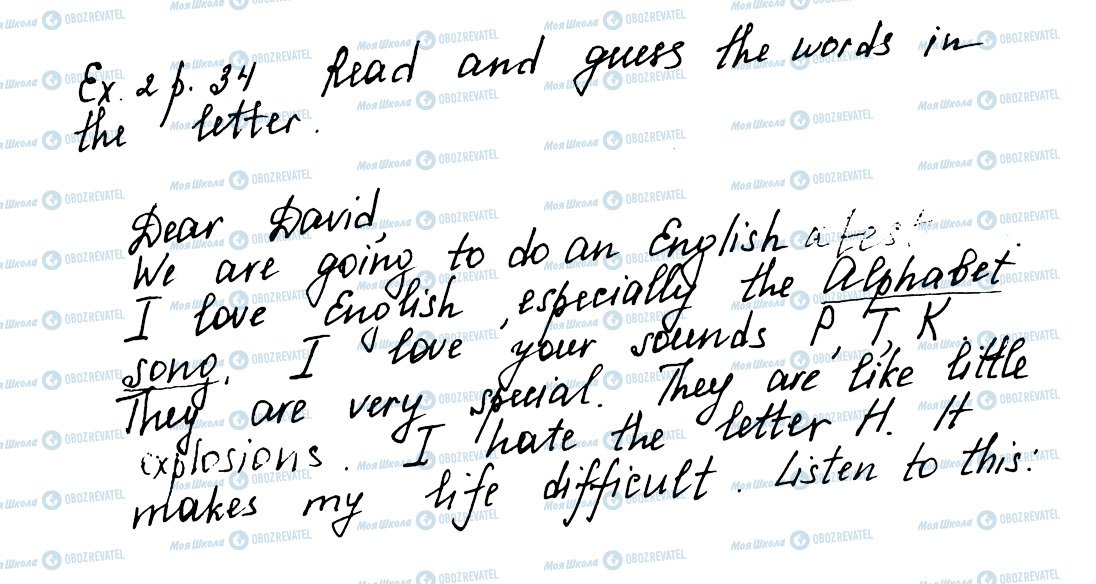 Ex. 2 p. 34 Read and guess the words in
the letter.
Dear David,
We are going to do an English a test
I love English, especially the Alphabet
song. I love your sounds P, T, K.
They are very special. They are like little
explosions. I hate the letter H. It
makes my life difficult. Listen to this: